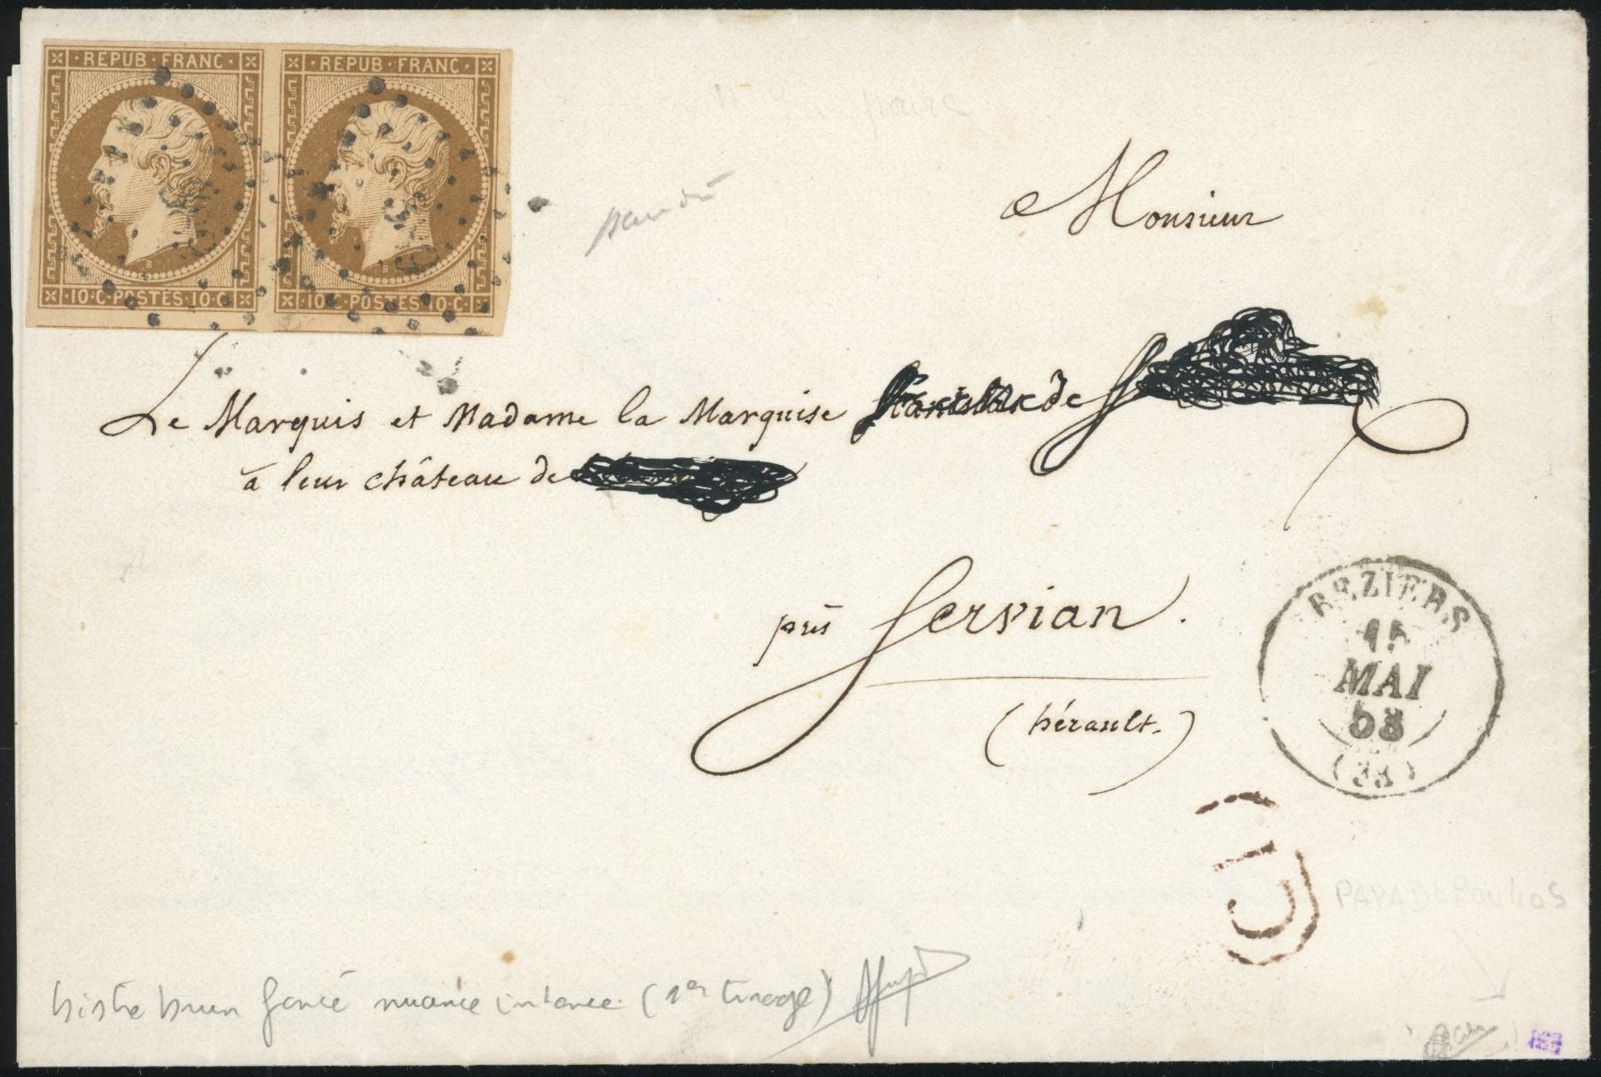 REPUB · FRANC · REPUB · FRANC ·
B B
· 10 · C · POSTES · 10 · C · · 10 · C · POSTES · 10 · C ·
Monsieur
Le Marquis et Madame la Marquise de
à leur château de
près Servian.
(hérault.)
BEZIERS
15
MAI
53
(33)
PAPADOPOULOS
bistre brun foncé nuance intense (1er tirage)